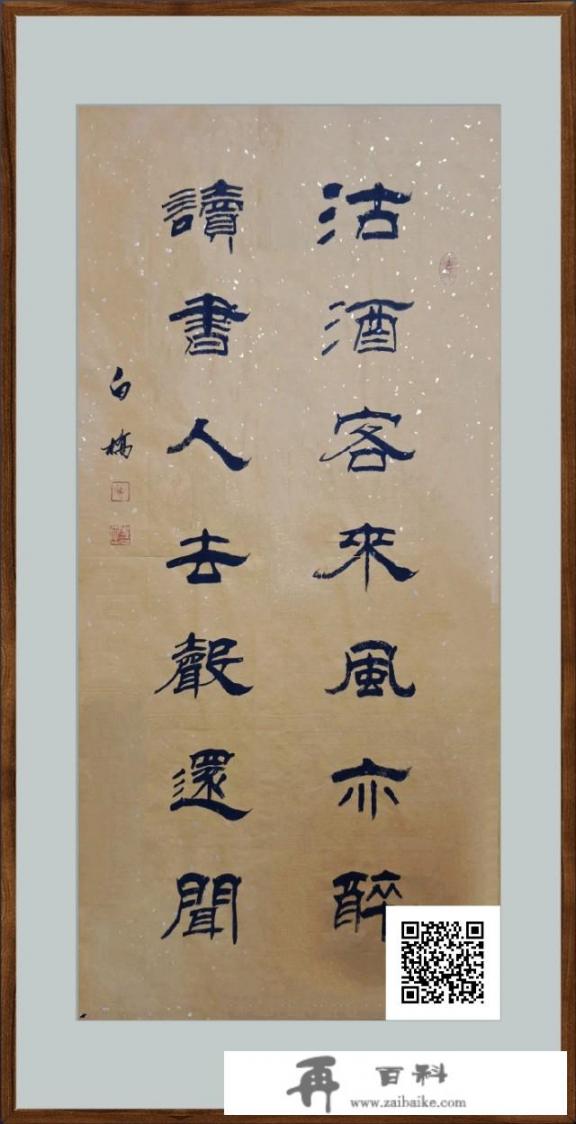 沽酒客來風亦醉
讀書人去聲還聞
白橋
再百科
www.zaibaike.com